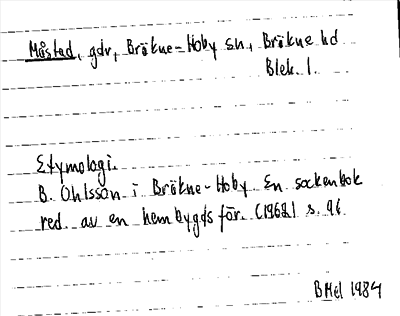 Måstad, gdr, Bräkne-Hoby sn, Bräkne hd
Blek. l.
Etymologi.
B. Ohlsson i Bräkne-Hoby. En sockenbok
red. av en hembygdsför. (1962) s. 96
BHel 1984